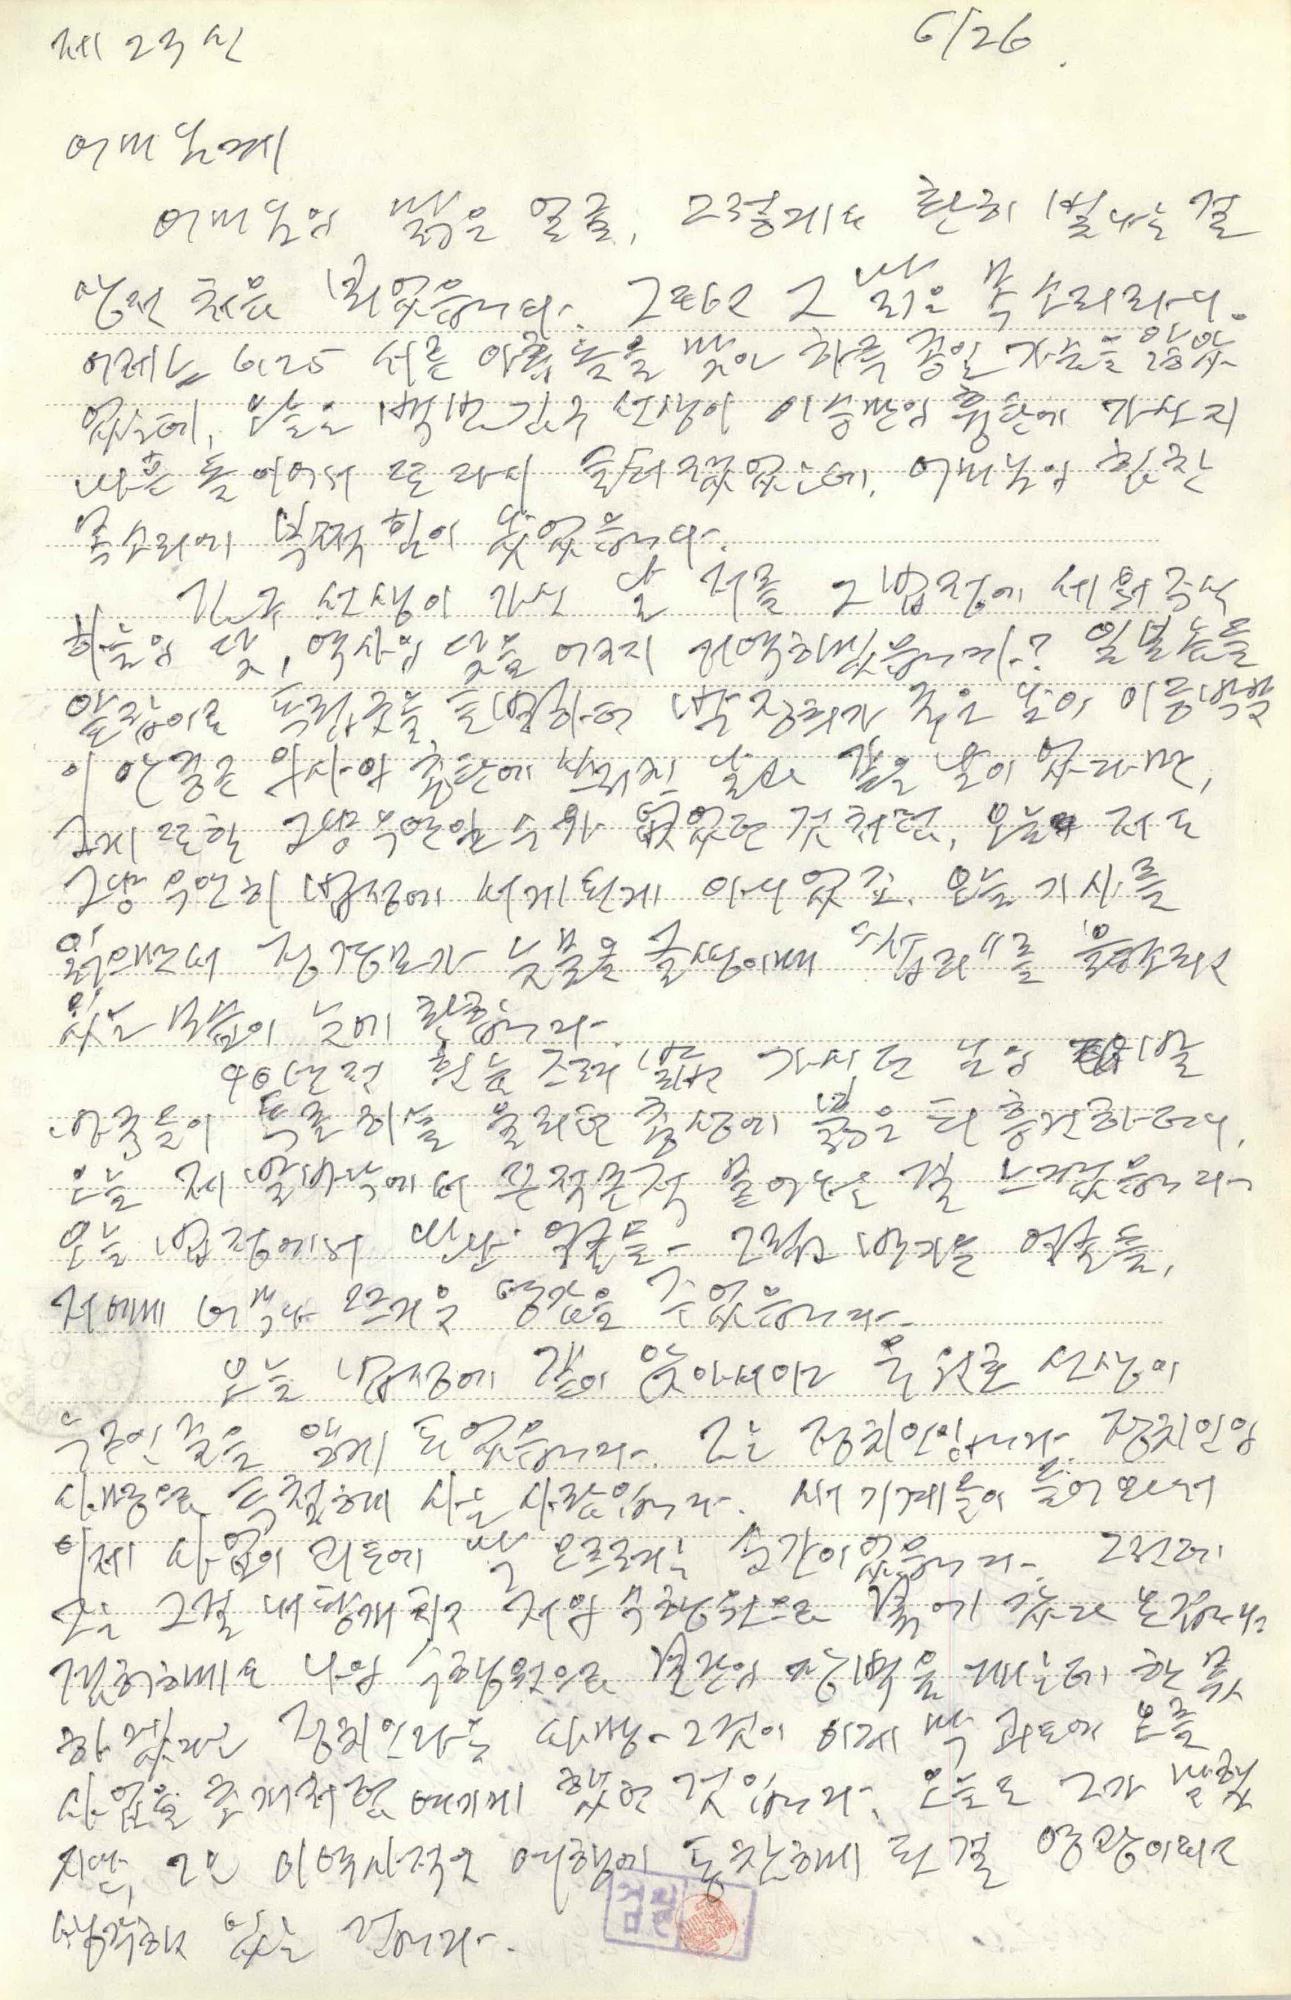 제 23신 6/26.
어머님께
어머님의 맑은 얼굴, 그렇게도 환히 빛나는 걸
생전 처음 뵈었습니다. 그리고 그 낡은 목소리라니.
어제는 6.25 서른 아홉 돌을 맞아 하루 종일 가슴을 앓았
있는데, 오늘은 백범 김구 선생이 이승만의 흉탄에 가신지
마흔 돌이어서 또 다시 슬퍼졌었는데, 어머님의 힘찬
목소리에 부쩍 힘이 솟았습니다.
김구 선생이 가신 날 저를 그 법정에 세워 주신
하늘의 뜻, 역사의 뜻을 어찌 거역하겠습니까? 일본놈들
앞잡이로 독립군을 토벌하던 박정희가 죽은 날이 이등박문
이 안중근 의사의 흉탄에 쓰러진 날과 같은 날이었다면,
그게 또한 그냥 우연일 수가 없었던 것처럼, 오늘 저도
그냥 우연히 법정에 서게 된게 아니었군요. 오늘 기사를
읽으면서 정경모가 눈물을 글썽이며 를 읊조리고
있는 모습이 눈에 환합니다.
40년전 흰눈 즈려 밟고 가시던 님의 발
자국들이 통곡하는 울리던 층상에 붉은 피 흥건하더니,
오늘 제 발바닥에서 끈적끈적 묻어나는 걸 느꼈습니다.
오늘 법정에서 만난 얼굴들 - 그립고 반가운 얼굴들,
저에게 너무나 뜨거운 영감을 주었습니다.
오늘 법정에 같이 앉아서야 유원호 선생이
누군인 줄을 알게 되었습니다. 그는 정치인입니다. 정치인의
사명으로 투철하게 사는 사람입니다. 새 기계들이 들어와서
이제 사업이 궤도에 막 오르려는 순간이었습니다. 그런데
그는 그걸 내팽개치고 저의 수행원으로 북에 갔다 온겁니다.
김구에도 나의 수행원으로 분단의 장벽을 깨는데 한 몫
하겠다는 정치인다운 사명 - 그것이 이제 막 궤도에 오를
사업을 초개처럼 여기게 했던 것입니다. 오늘도 그가 말했
지만, 그는 이 역사적인 여행에 동참하게 된 걸 영광이라고
생각하고 있는 겁니다.
검열